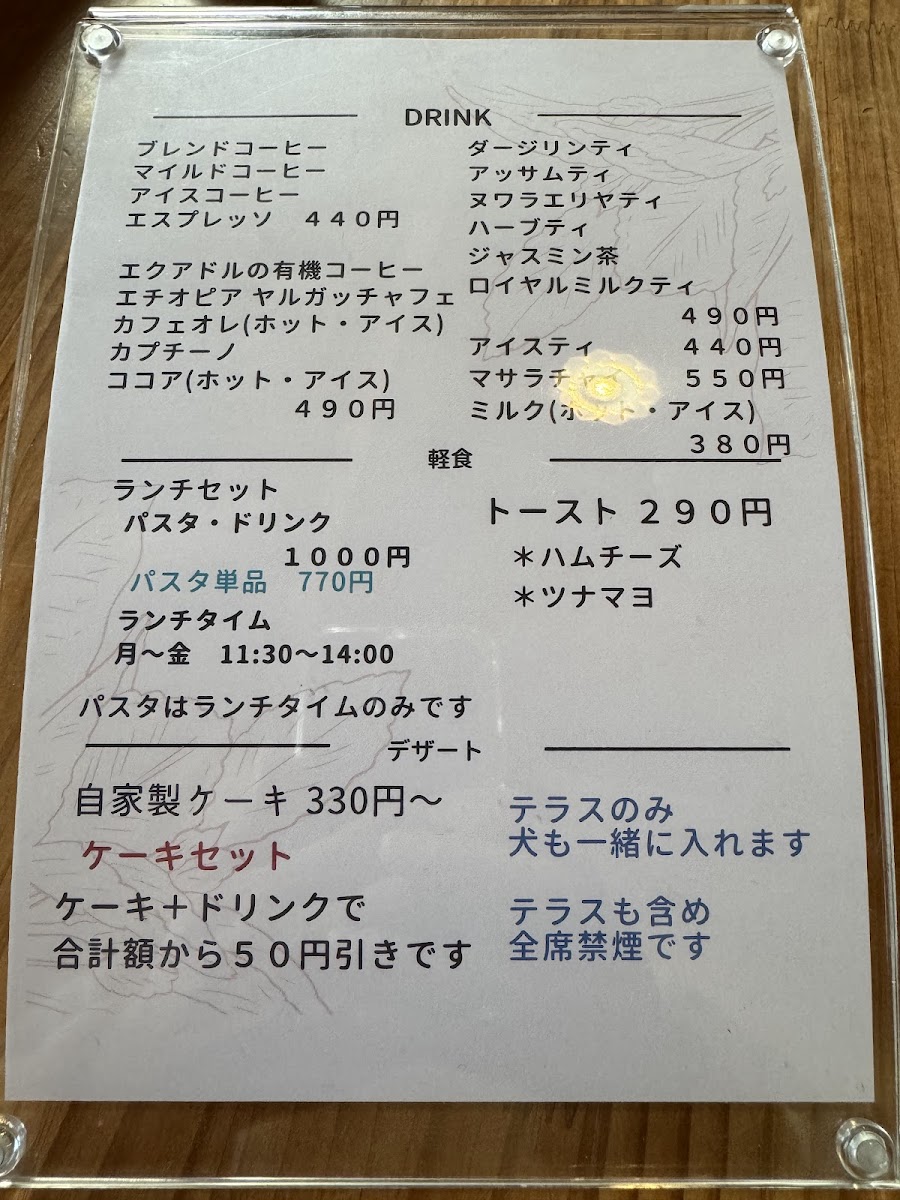 DRINK
ブレンドコーヒー
マイルドコーヒー
アイスコーヒー
エスプレッソ　４４０円
エクアドルの有機コーヒー
エチオピア ヤルガッチャフェ
カフェオレ(ホット・アイス)
カプチーノ
ココア(ホット・アイス)
４９０円
ダージリンティ
アッサムティ
ヌワラエリヤティ
ハーブティ
ジャスミン茶
ロイヤルミルクティ
４９０円
アイスティ　４４０円
マサラチャイ　５５０円
ミルク(ホット・アイス)
３８０円
軽食
ランチセット
パスタ・ドリンク
１０００円
パスタ単品　770円
ランチタイム
月～金　11:30～14:00
パスタはランチタイムのみです
トースト ２９０円
＊ハムチーズ
＊ツナマヨ
デザート
自家製ケーキ 330円～
ケーキセット
ケーキ＋ドリンクで
合計額から５０円引きです
テラスのみ
犬も一緒に入れます
テラスも含め
全席禁煙です